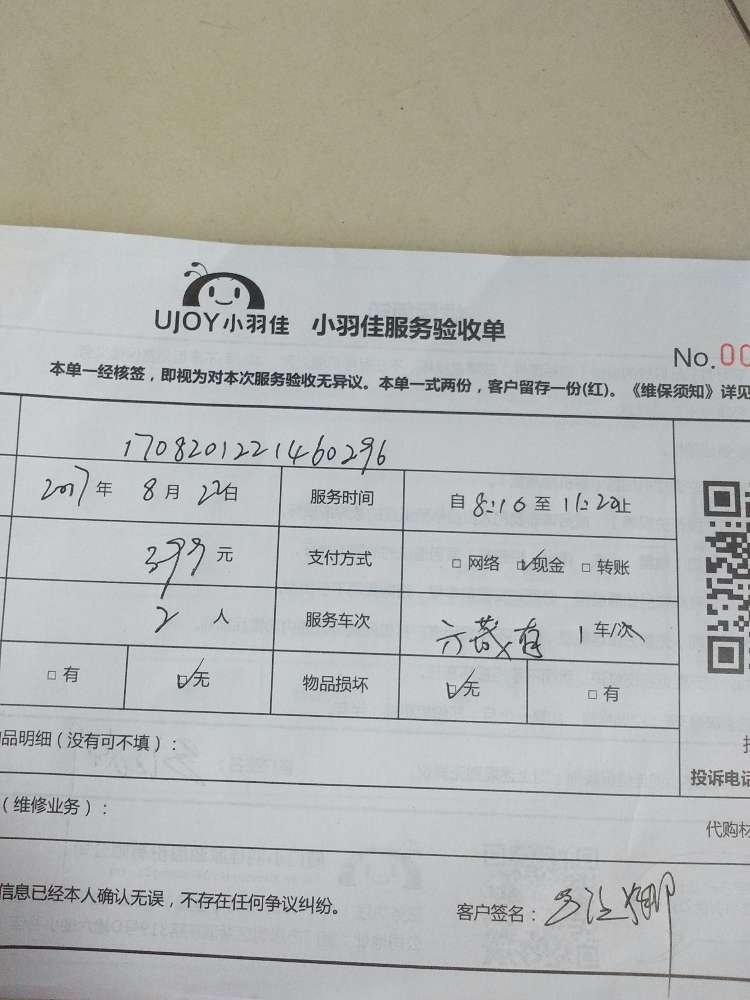 UJOY小羽佳 小羽佳服务验收单
No.00
本单一经核签，即视为对本次服务验收无异议。本单一式两份，客户留存一份(红)。《维保须知》详见
1708201221460296
2017年 8月 22日 服务时间 自 8:10 至 11:20止
399 元 支付方式 □ 网络 ☑现金 □ 转账
2 人 服务车次 1 车/次
□ 有 ☑无 物品损坏 ☑无 □ 有
品明细（没有可不填）：
投诉电话
（维修业务）：
代购材
信息已经本人确认无误，不存在任何争议纠纷。
客户签名：